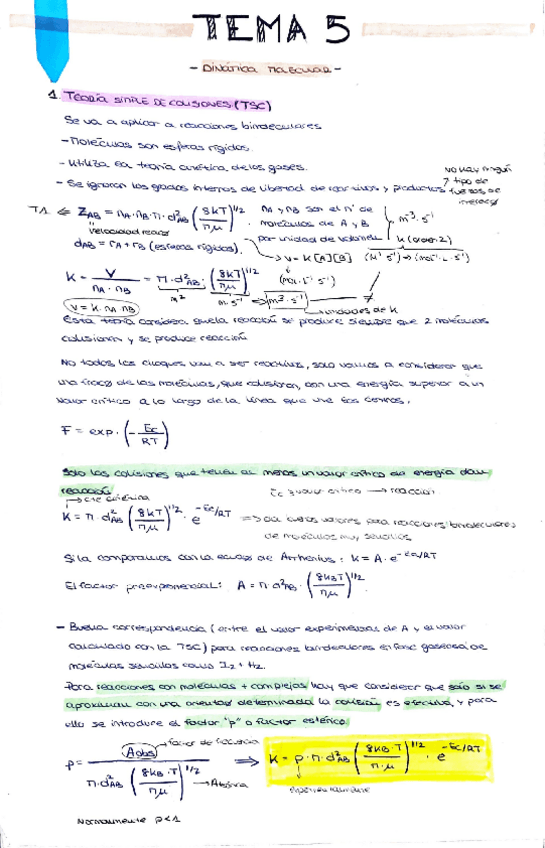 TEMA 5
- DINÁMICA MOLECULAR -
1. TEORÍA SIMPLE DE COLISIONES (TSC)
Se va a aplicar a reacciones bimoleculares
- Moléculas son esferas rígidas.
- Utiliza la teoría cinética de los gases.
- Se ignoran los grados internos de libertad de reactivos y productos
no hay ningún
tipo de
T1 ⇐ Z_AB = n_A · n_B · π · d²_AB (8kT/πμ)^1/2
n_A y n_B son el nº de
moléculas de A y B
por unidad de volumen
m³·s⁻¹
velocidad
d_AB = r_A + r_B (esferas rígidas)
v = k [A][B]
k (orden 2)
K = V / n_A · n_B = π · d²_AB · (8kT/πμ)^1/2
m²
m·s⁻¹
m³·s⁻¹
≠
v = k · n_A · n_B
unidades de k
Esta teoría considera que la reacción se produce siempre que 2 moléculas
colisionan y se produce reacción
No todos los choques van a ser reactivos, solo vamos a considerar que
una fracc de las moléculas, que colisionan, con una energía superior a un
valor crítico a lo largo de la línea que une los centros.
F = exp · (- Ec/RT)
Solo las colisiones que tienen al menos un valor crítico de energía dan
reacción
Ec valor crítico → reacción
cte cinética
K = π · d²_AB (8kT/πμ)^1/2 · e^-Ec/RT
valores para reacciones bimoleculares
de moléculas muy sencillas
Si la comparamos con la ecuac de Arrhenius: K = A · e^-Ea/RT
El factor preexponencial: A = π · d²_AB · (8k_BT/πμ)^1/2
- Buena correspondencia (entre el valor experimental de A y el valor
calculado con la TSC) para reacciones bimoleculares en fase gaseosa de
moléculas sencillas como I2 + H2.
Para reacciones con moléculas + complejas hay que considerar que solo si se
aproximan con una orientac determinada la colisión es efectiva, y para
ello se introduce el factor "p" o factor estérico.
factor de frecuencia
p = A_obs / π · d²_AB (8k_B · T/πμ)^1/2
⇒ K = p · π · d²_AB (8k_B · T/π · μ)^1/2 · e^-Ec/RT
A teórica
experimentalmente
Normalmente p<1